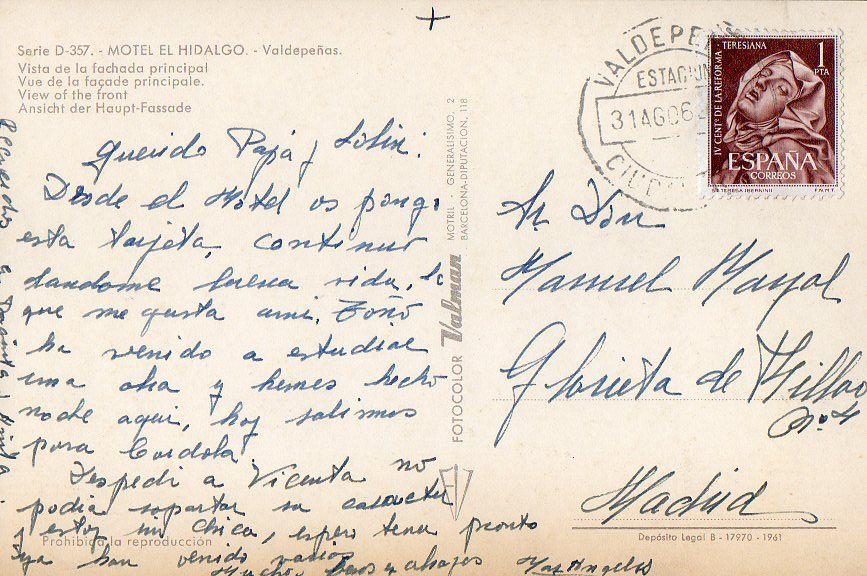 Serie D-357. - MOTEL EL HIDALGO. - Valdepeñas.
Vista de la fachada principal
Vue de la façade principale.
View of the front
Ansicht der Haupt-Fassade
Querido Papá y Lolin:
Desde el Motel os pongo
esta tarjeta, continuo
dandome buena vida, lo
que me gusta a mi. Toño
ha venido a estudiar
una obra y hemos hecho
noche aqui, hoy salimos
para Cordoba.
Despedi a Vicenta no
podia soportar su caracter
y estoy sin chica, espero tener pronto
ya han venido varias
Muchos besos y abrazos
Mª Angeles
Recuerdos a
Prohibida la reproducción
FOTOCOLOR Valman MOTRIL - GENERALISIMO, 2
BARCELONA-DIPUTACION, 118
VALDEPEÑAS
ESTACION
31 AGO 62
CIUDAD
IV CENTº DE LA REFORMA - TERESIANA
1
PTA
ESPAÑA
CORREOS
STA TERESA (BERNINI)
F.N.M.T.
Sr. Don
Manuel Mayol
Glorieta de Bilbao
nº 4
Madrid
Depósito Legal B - 17970 - 1961